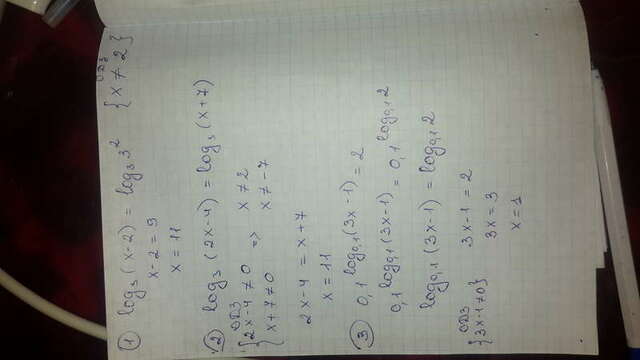 ① log₃(x-2) = log₃3² ОДЗ {x ≠ 2}
x-2 = 9
x = 11
② log₃(2x-4) = log₃(x+7)
ОДЗ
{2x-4 ≠ 0 => x ≠ 2
x+7 ≠ 0 x ≠ -7
2x-4 = x+7
x = 11
③ 0,1^log₀,₁(3x-1) = 2
0,1^log₀,₁(3x-1) = 0,1^log₀,₁2
log₀,₁(3x-1) = log₀,₁2
ОДЗ
{3x-1 ≠ 0} 3x-1 = 2
3x = 3
x = 1